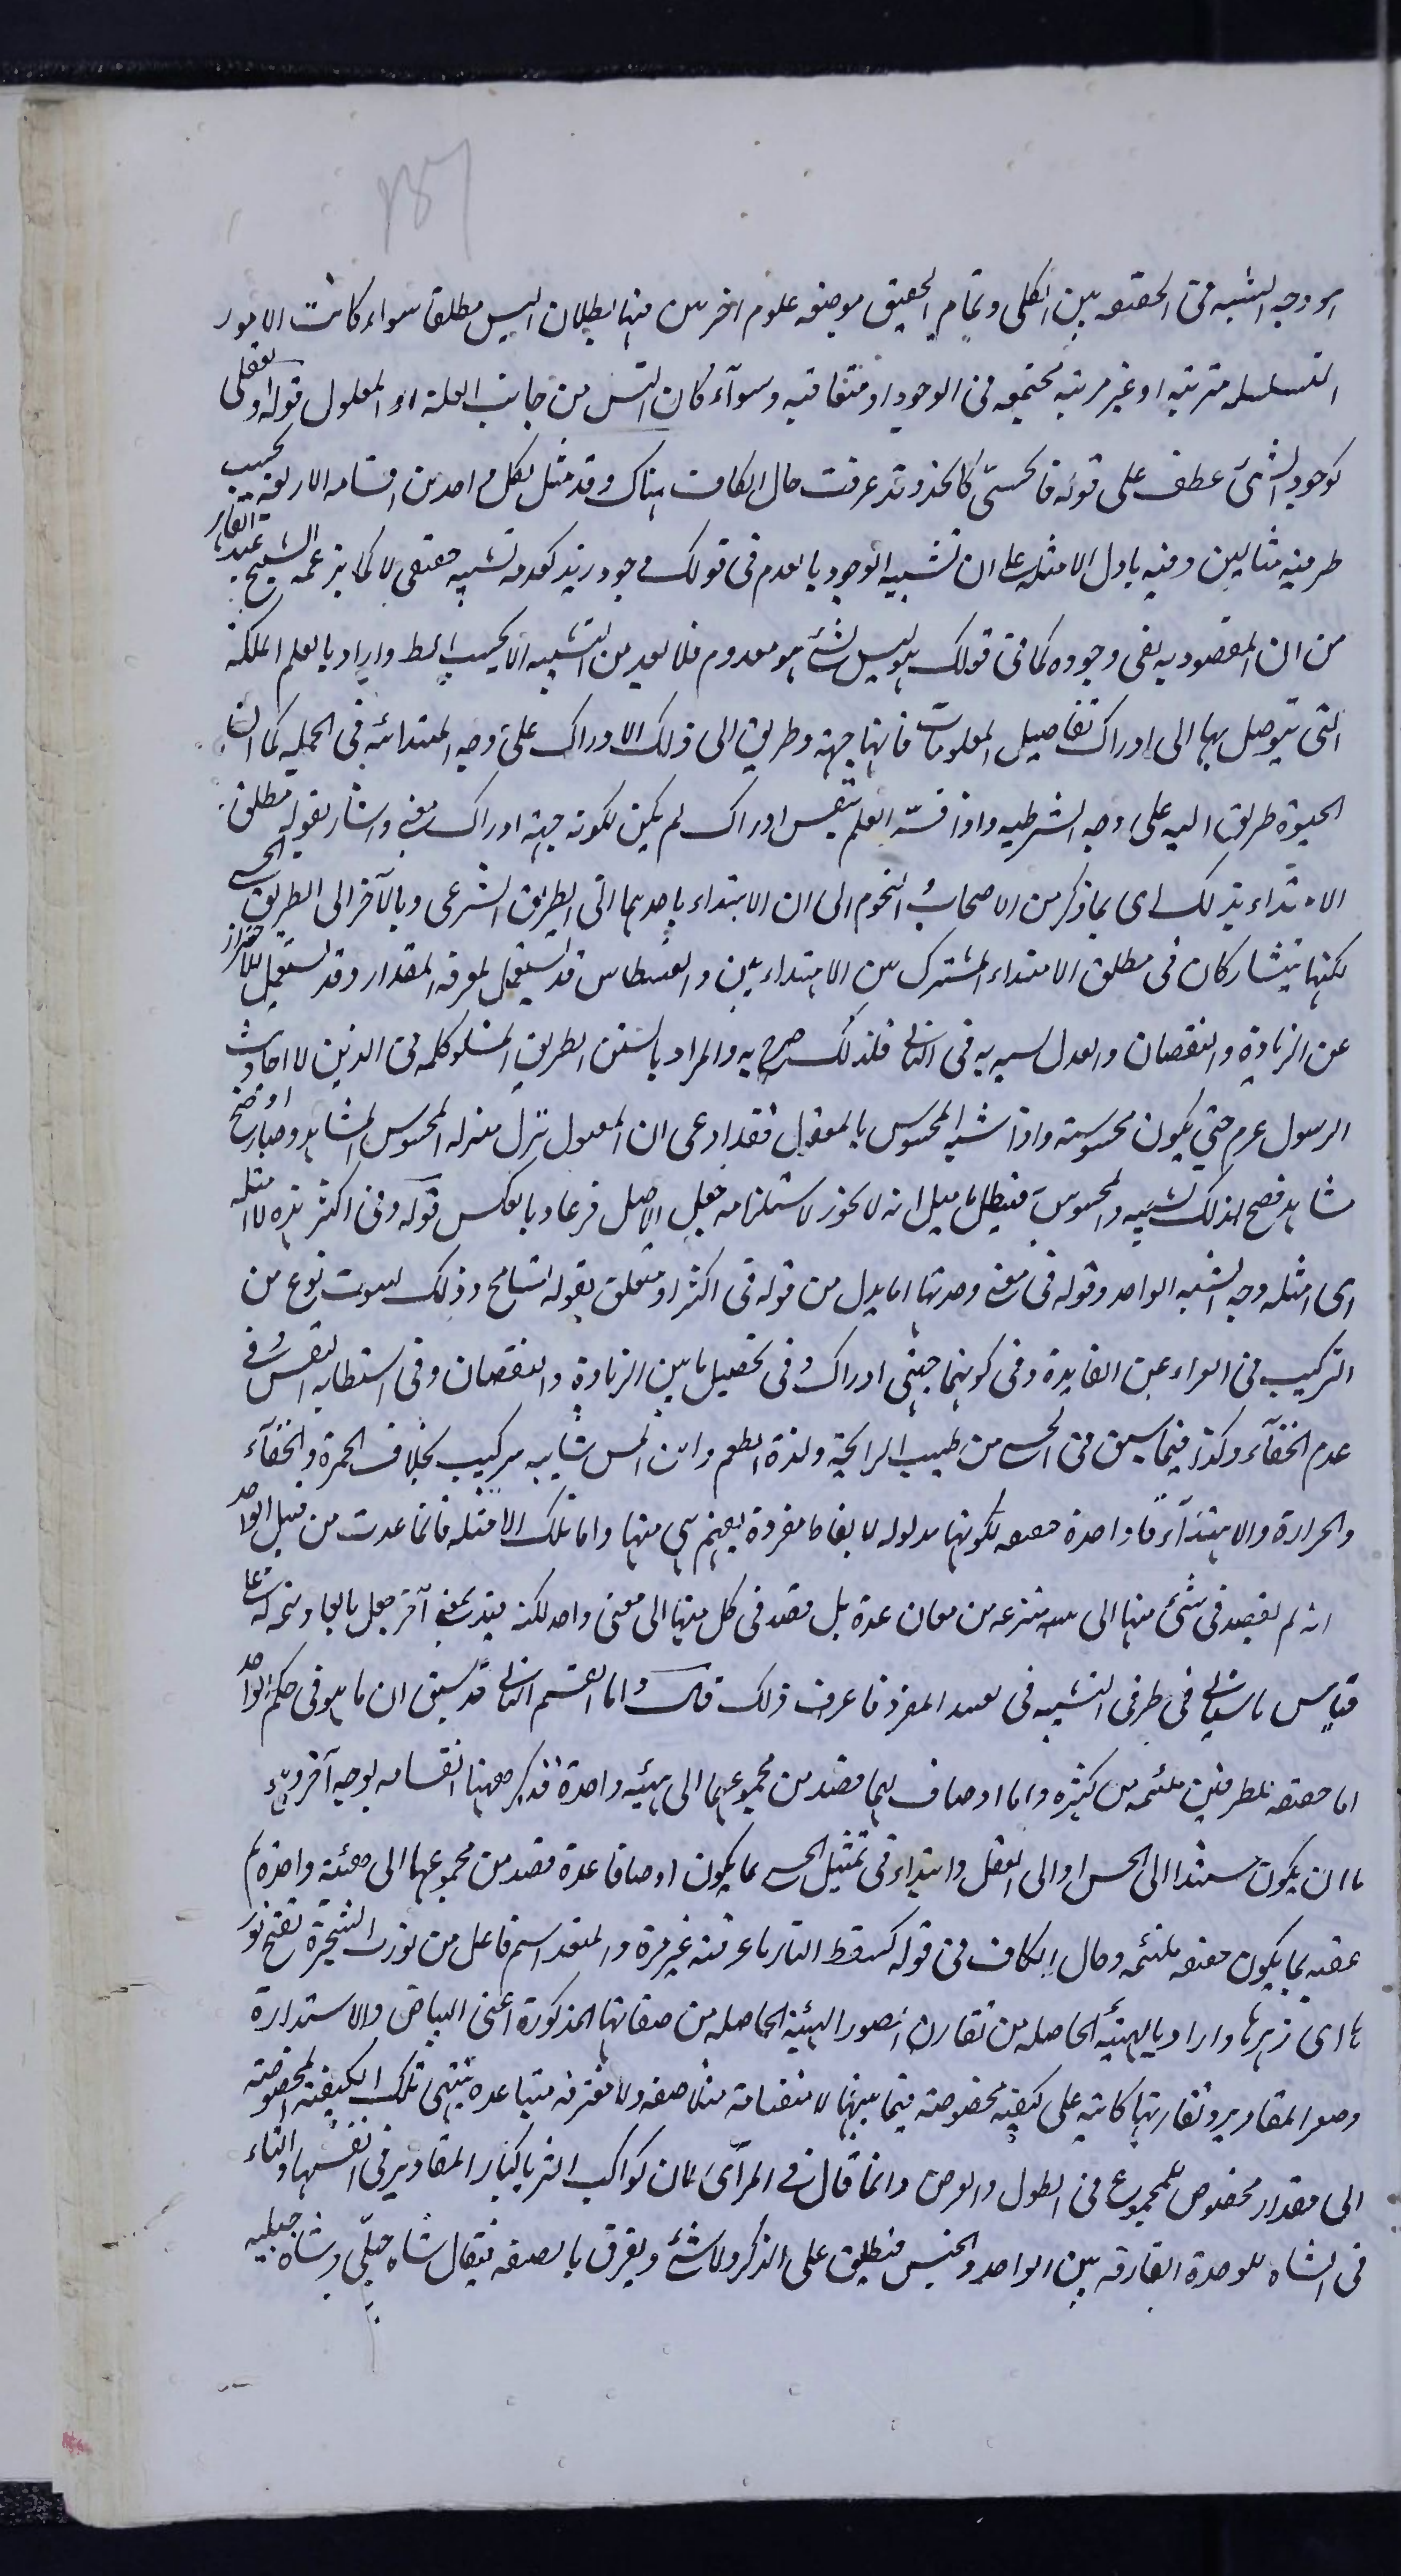 وجه الشبه فى الحقيقه بين الكلى وتمام الحقيق موضعه علوم اخر من منها بطلان اليس مطلقا سواء كانت الامور
المتسلسله مترتبه او غير مرتبه مجتمعه فى الوجود او متعاقبه وسوآء كان التس من جانب العلة او المعلول قوله او عقلى
كوجود الشئ عطف على قوله فالحسىّ كالخد وقد عرفت حال الكاف هناك وقد مثل لكل واحد من اقسامه الاربعة بحسب
طرفيه مثالين ونبه باول الامثله على ان تشبيه الوجود بالعدم فى قولك وجود زيد كعدمه تشبيه حقيقى لا كما يزعمه الشيخ عبد القاهر
من ان المقصود به نفى وجوده كما فى قولك هو ليس بشئ هو معدوم فلا يعد من التشبيه الا بحسب الظ واراد بالعلم الملكة
التى يتوصل بها الى ادراك تفاصيل المعلومات فانها جهة وطريق الى ذلك الادراك على وجه المبتدائه فى الجمله كما ان
الحيوة طريق اليه على وجه الشرطيه واذا فسّر العلم بنفس ادراك لم يكن لكونه جهة ادراك معنى واشار بقوله مطلق
الاهتداء بذلك اى بما ذكر من الاصحاب والنجوم الى ان الاهتداء باحدهما الى الطريق الشرعى وبالآخر الى الطريق الحسى
لكنها يتشاركان فى مطلق الاهتداء المشترك بين الاهتداءين والقسطاس قد يستعمل لمعرفه المقدار وقد يستعمل للاحتراز
عن الزيادة والنقصان والعدل يشبه به فى الثانى فلذلك صرح به والمراد بالسنن الطريق المسلوكه فى الدين لا احاديث
الرسول عم حتى يكون محسوسة واذا شبه المحسوس بالمعقول فقد ادعى ان المعقول نزل منزله المحسوس المشاهد وصار اوضح
مشاهد فصح لذلك تشبيه المحسوس فبطل ما قيل انه لا يجوز لاستلزامه جعل الاصل فرعا وبالعكس قوله وفى اكثر هذه الامثله
اى امثله وجه الشبه الواحد وقوله فى معنى وحدتها اما بدل من قوله فى اكثر او متعلق بقوله تسامح وذلك لثبوت نوع من
التركيب فى العراء عن الفايدة وفى كونهما جهتى ادراك وفى تحصيل ما بين الزيادة والنقصان وفى استطابه النفس وفى
عدم الخفآء وكذا فيما سبق فى الحسى من طيب الرايحة ولذة الطعم ولين المس شايبه تركيب بخلاف الحمرة والخفآء
والحرارة والاهتدآء فا واحدة حقيقه لكونها مدلوله لالفاظ مفردة يفهم هى منها واما تلك الامثله فانما عدت من قبيل الواحد
انه لم يقصد فى شئ منها الى هيئه منتزعه من معان عدة بل قصد فى كل منها الى معنى واحد لكنه مقيد بمعنى آخر جعل تابعا وتتمه له على
قياس ما سيأتى فى طرفى التشبيه فى تقييد المفرد فاعرف ذلك قال واما القسم الثانى قد سبق ان ما هو فى حكم الواحد
اما حقيقه للطرفين ملتئمه من كثيره واما اوصاف لهما قصد من مجموعهما الى هيئه واحدة فذكر ههنا انقسامه بوجه آخر وهو
اما ان يكون مستندا الى الحس او الى العقل وابتداء فى تمثيل الحسى بما يكون اوصافا عدة قصد من مجموعها الى هيئة واحدة ثم
عقبه بما يكون حقيقه ملتئمه وحال الكاف فى قوله كسقط النار ما عرفته غير مرة والمنور اسم فاعل من نورت الشجرة تفتح نور
ها اى زهرها واراد بالهيئه الحاصله من تقارن الصور الهيئة الحاصله من صفاتها المذكورة اعنى البياض والاستدارة
وصغر المقادير وتقارنها كاينه على كيفية مخصوصة فيما بينها لا منضامة متلاصقه ولا مفترقه متباعدة ينتهى تلك الكيفية المخصوصة
الى مقدار مخصوص للمجموع فى الطول والعرض وانما قال فى المرآى لان كواكب الثريا كبار المقادير فى انفسها والتاء
فى الشاه للوحدة الفارقه بين الواحد والجنس فتطلق على الذكر والانثى ويفرق بالصفه فيقال شاه جبلى وشاه جبليه